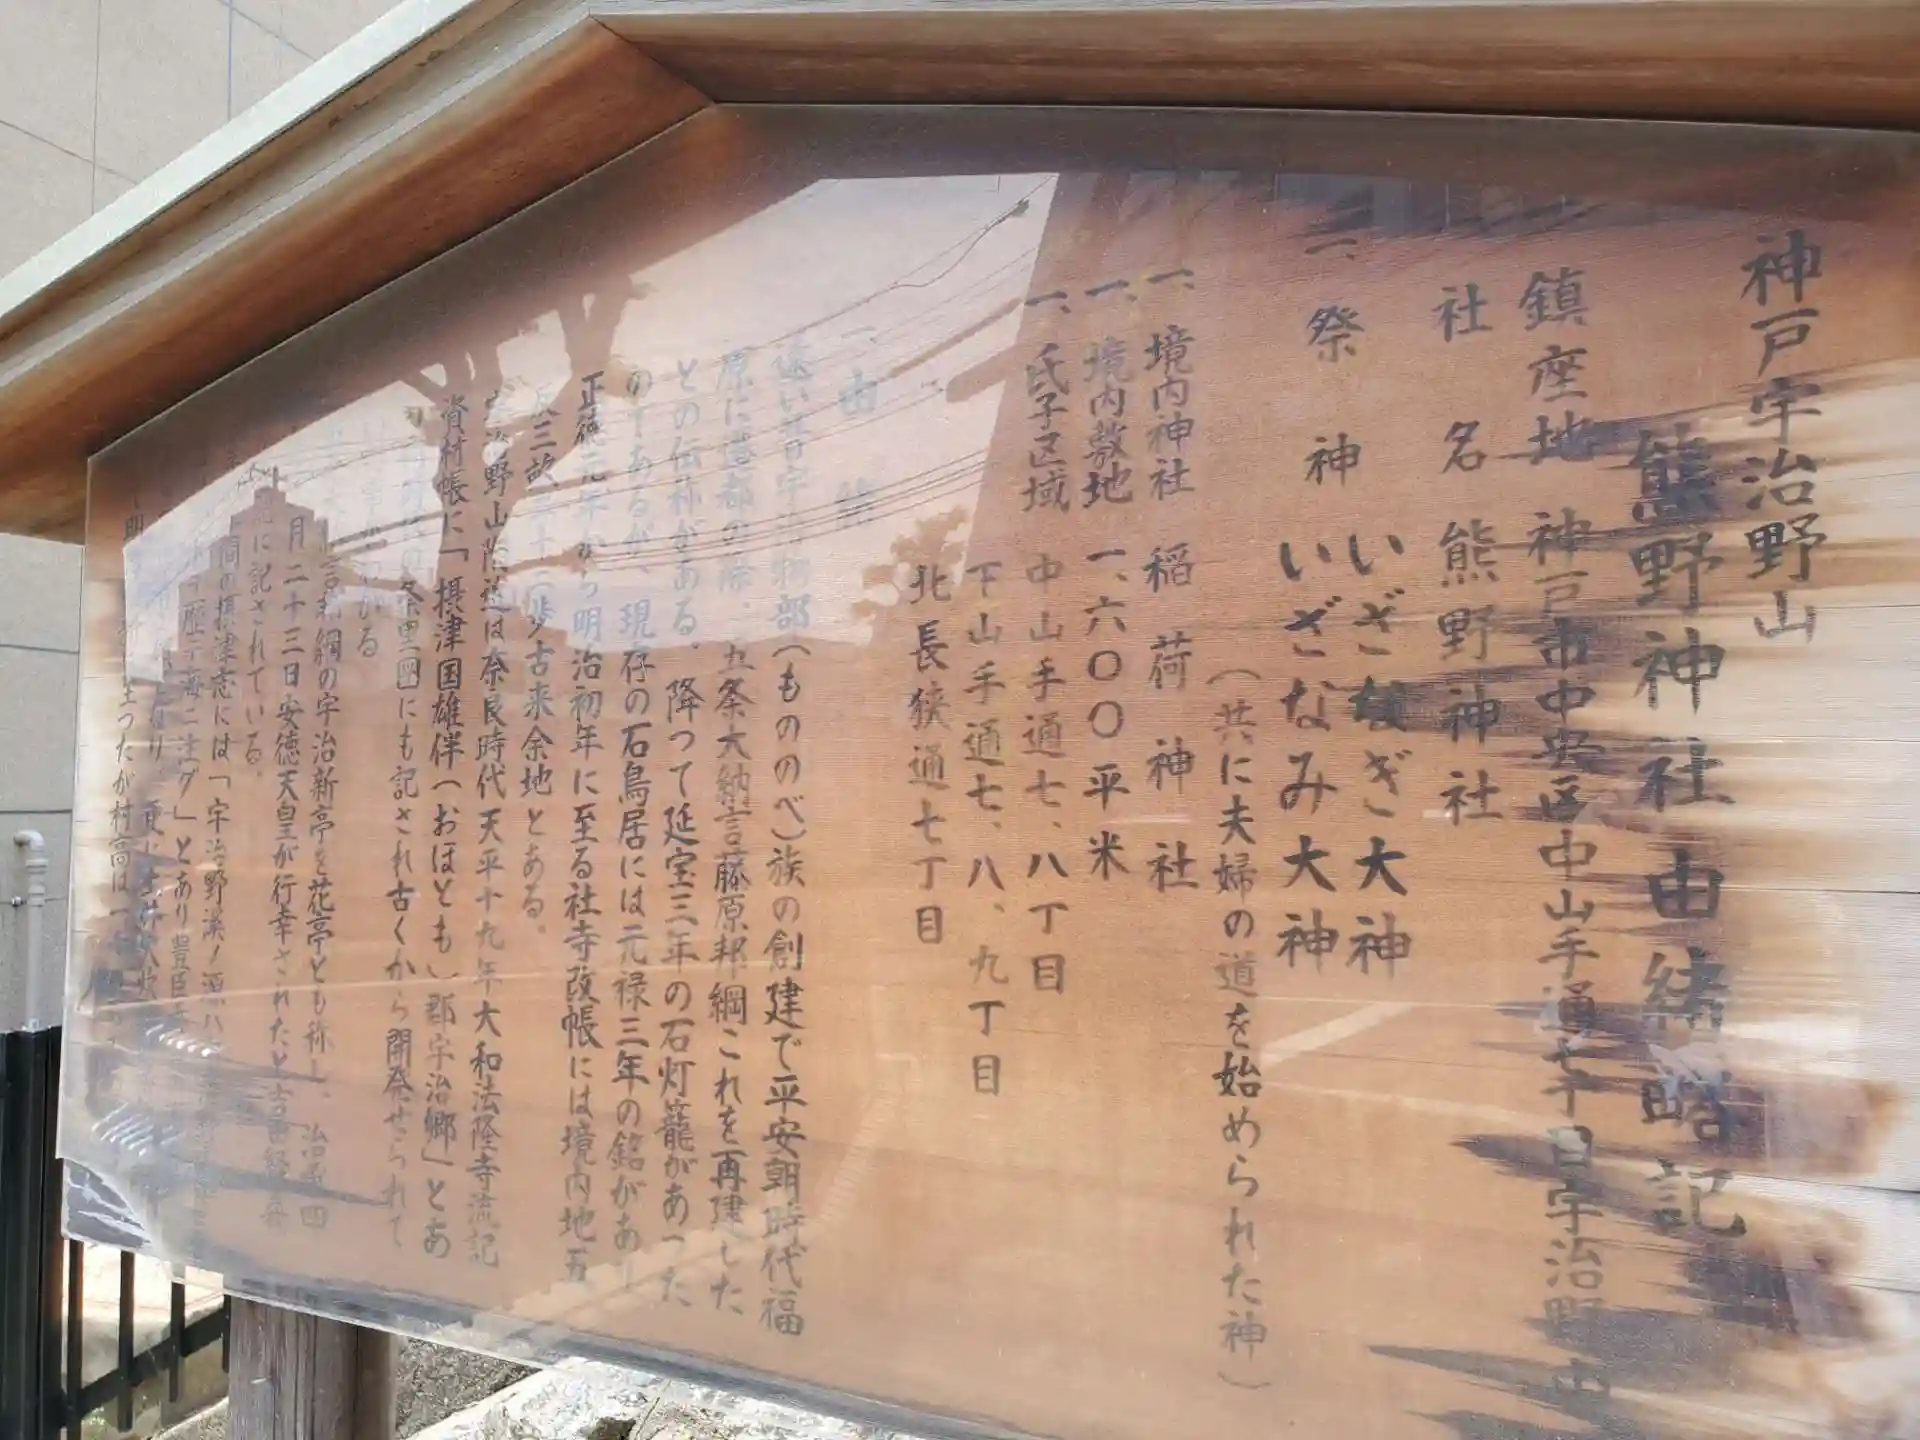 神戸宇治野山
熊野神社由緒略記
鎮座地 神戸市中央区中山手通七丁目宇治野山
社名 熊野神社
一、祭神 いざなぎ大神
いざなみ大神
(共に夫婦の道を始められた神)
一、境内神社 稲荷神社
一、境内敷地 一、六〇〇平米
一、氏子区域 中山手通七、八丁目
下山手通七、八、九丁目
北長狭通七丁目
一、由緒
遠い昔宇治物部(もののべ)族の創建で平安朝時代福
原に遷都の際、五条大納言藤原邦綱これを再建した
との伝称がある。降って延宝三年の石灯籠があった
のであるが、現存の石鳥居には元禄三年の銘があり
正徳元年から明治初年に至る社寺改帳には境内地五
反三畝二十二歩古来余地とある。
宇治野山陰道は奈良時代天平十九年大和法隆寺流記
資材帳に「摂津国雄伴(おほとも)郡宇治郷」とあ
の条里図にも記され古くから開発せられて
いる
言邦綱の宇治新亭を花亭とも称し、治承四
月二十三日安徳天皇が行幸されたと吉田経房
記に記されている。
間の摂津志には「宇治野渓ノ源ハ
歴テ海ニ注グ」とあり豊臣
なり、更に
立つたが村高は一